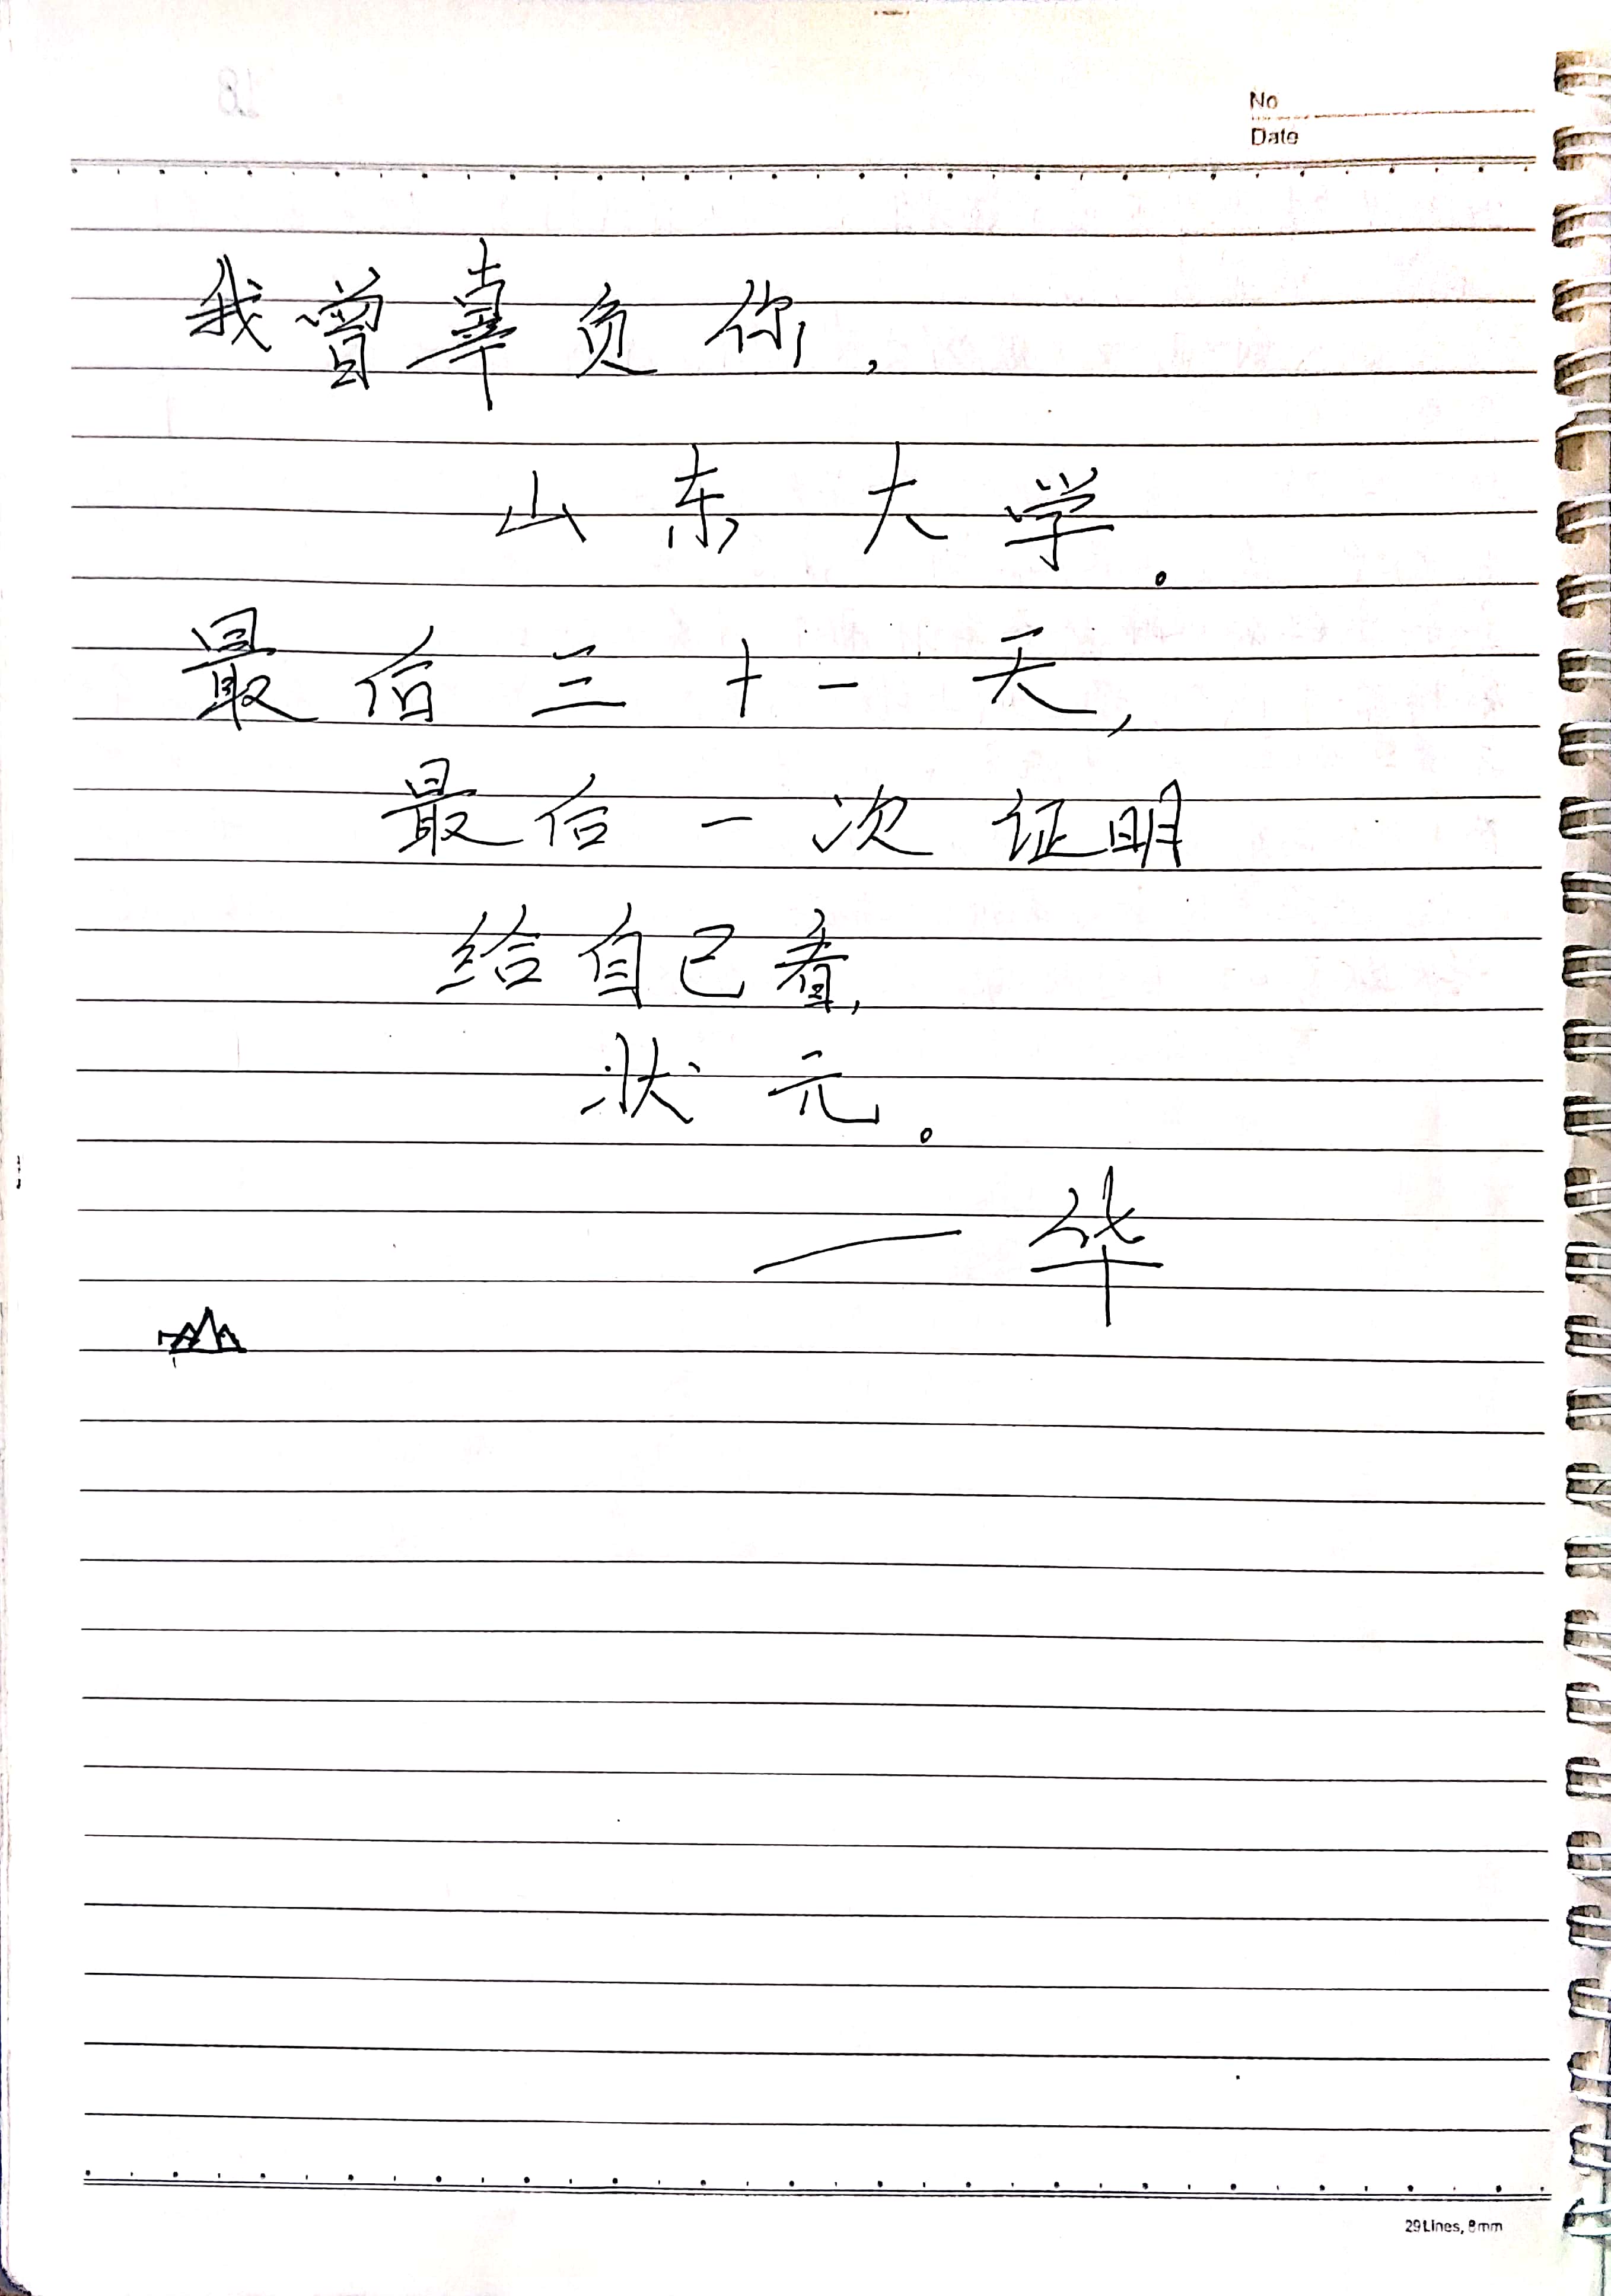 No
Date
我曾辜负你,
山东大学。
最后三十一天,
最后一次证明
给自己看,
状元。
一华
29Lines, 8mm